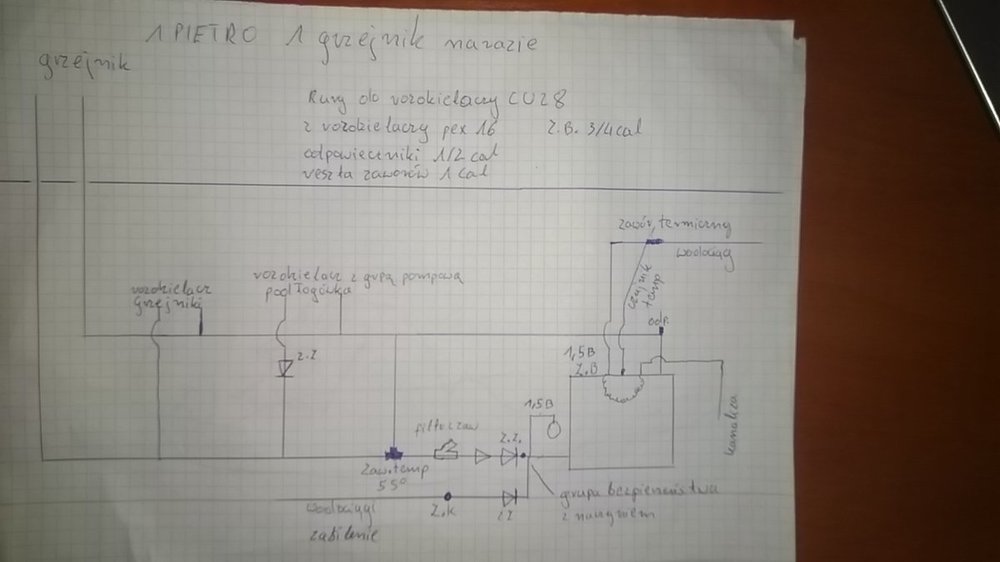 1 PIETRO 1 grzejnik narazie
grzejnik
Rury do rozdzielaczy CU28
z rozdzielaczy pex 16 Z.B. 3/4cal
odpowiedniki 1/2 cal
reszta zaworów 1 cal
zawór, termiczny
wodociąg
czujnik
temp
rozdzielacz z grupą pompową
podłogówka
rozdzielacz
grzejniki
odp.
z.z
1,5B
Z.B
1,5B
kanaliza
filtr
z.z.
Zaw.temp
55°
grupa bezpieczeństwa
z naczyniem
wodociąg
Z.K
zz